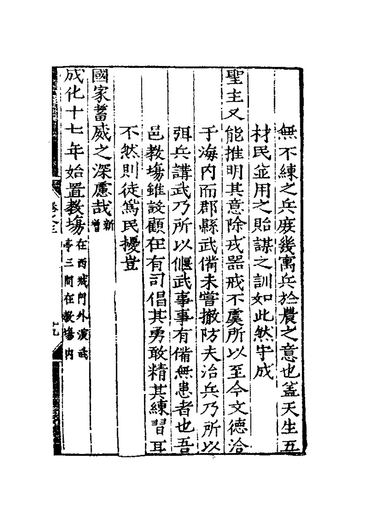 無不練之兵庶幾寓兵於農之意也蓋天生五
材民並用之貽謀之訓如此然守成
聖主又能推明其意除戎器戒不虞所以至今文德洽
于海内而郡縣武備未嘗撤防夫治兵乃所以
弭兵講武乃所以偃武事事有備無患者也吾
邑教塲雖設顧在有司倡其勇敢精其練習耳
不然則徒爲民擾豈
國家蓄威之深慮哉新增
成化十七年始置教塲在西城門外演武
亭三間在教塲内
十九